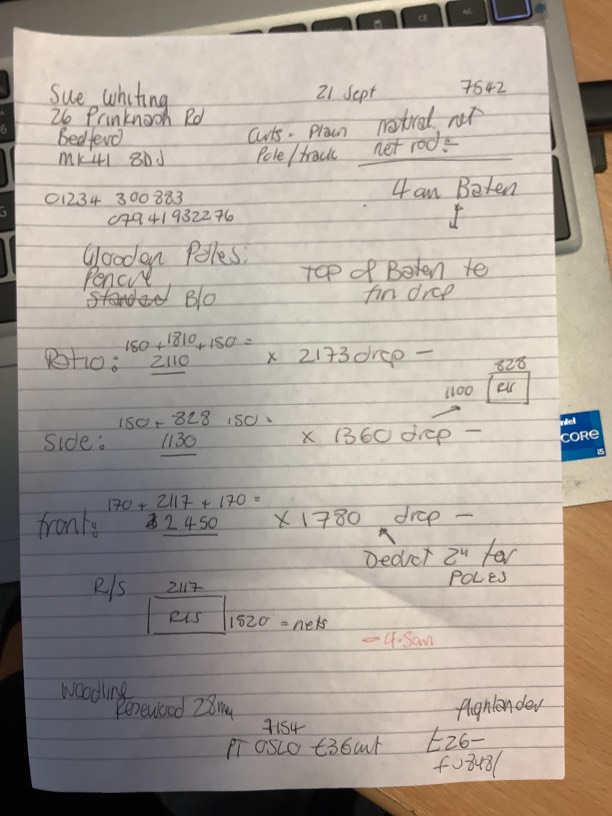 Sue Whiting 21 Sept 7542
26 Prinknash Rd
Bedford Curts - Plain natural net
MK41 8DJ Pole/track net rod =
01234 300883 4 cm Baten
07941932276
Wooden Poles: Top of Baten to
Pencil fin drop
Standed B/O
150 + 1810 + 150 =
Patio: 2110 x 2173 drop -
828
1100 R/S
150 + 828 150 =
Side: 1130 x 1360 drop -
170 + 2117 + 170 =
front: 2450 x 1780 drop -
Deduct 2" for
POLES
R/S 2117
R/S 1520 = nets
- 4.5cm
Woodline
Rosewood 28mm Highlander
7154
PT OSLO £36mt £26-
intel
CORE
i5